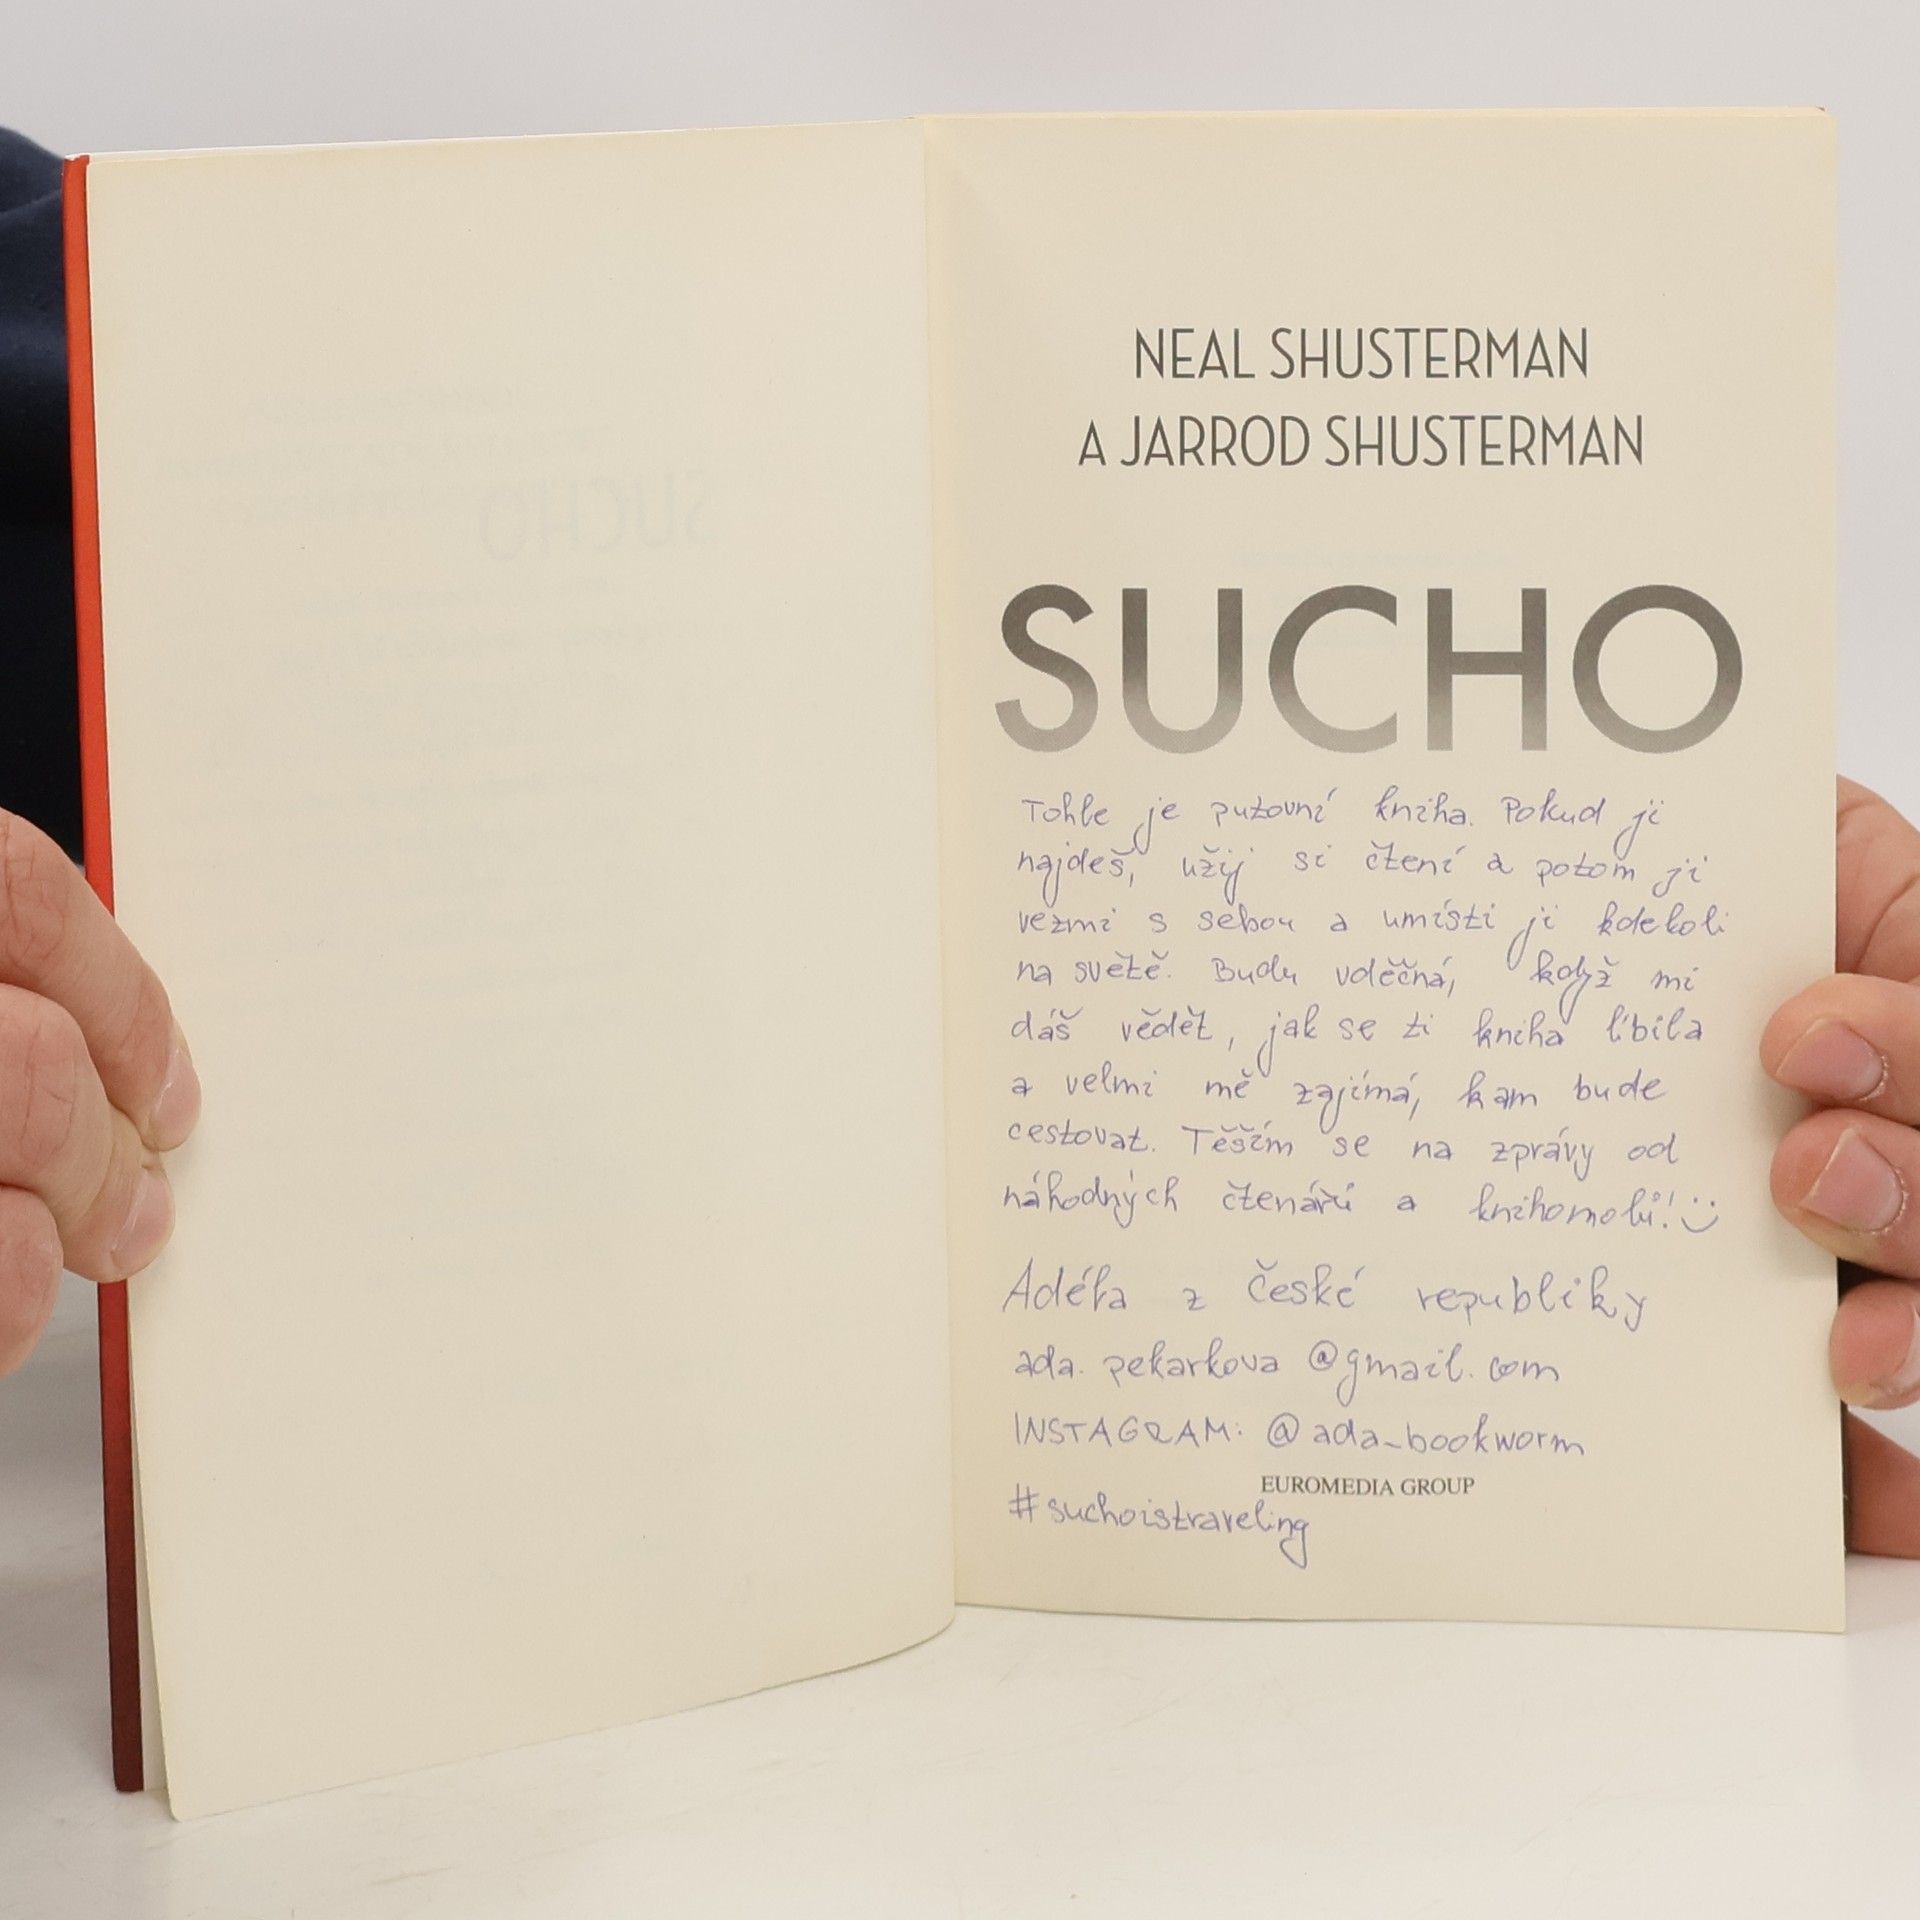 NEAL SHUSTERMAN
A JARROD SHUSTERMAN
SUCHO
Tohle je putovní kniha. Pokud ji
najdeš, užij si čtení a potom ji
vezmi s sebou a umísti ji kdekoli
na světě. Budu vděčná, když mi
dáš vědět, jak se ti kniha líbila
a velmi mě zajímá, kam bude
cestovat. Těším se na zprávy od
náhodných čtenářů a knihomolů! :)
Adéla z České republiky
ada.pekarkova@gmail.com
INSTAGRAM: @ada_bookworm
EUROMEDIA GROUP
#suchoistraveling